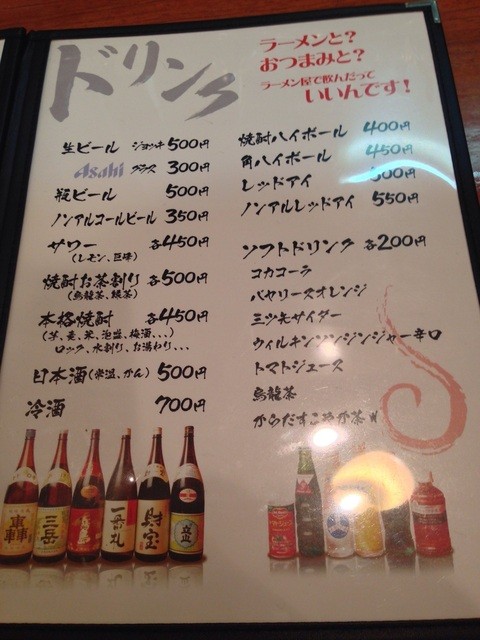 ドリンク
ラーメンと？
おつまみと？
ラーメン屋で飲んだって
いいんです！
生ビール ジョッキ 500円
Asahi グラス 300円
瓶ビール 500円
ノンアルコールビール 350円
サワー 各450円
(レモン、巨峰)
焼酎お茶割り 各500円
(烏龍茶、緑茶)
本格焼酎 各450円
(芋、麦、米、泡盛、梅酒、、、)
ロック、水割り、お湯わり、、、
日本酒(常温、かん) 500円
冷酒 700円
焼酎ハイボール 400円
角ハイボール 450円
レッドアイ 500円
ノンアルレッドアイ 550円
ソフトドリンク 各200円
コカコーラ
バヤリースオレンジ
三ツ矢サイダー
ウィルキンソンジンジャー辛口
トマトジュース
烏龍茶
からだすこやか茶W
轟
三岳
一番札
財宝